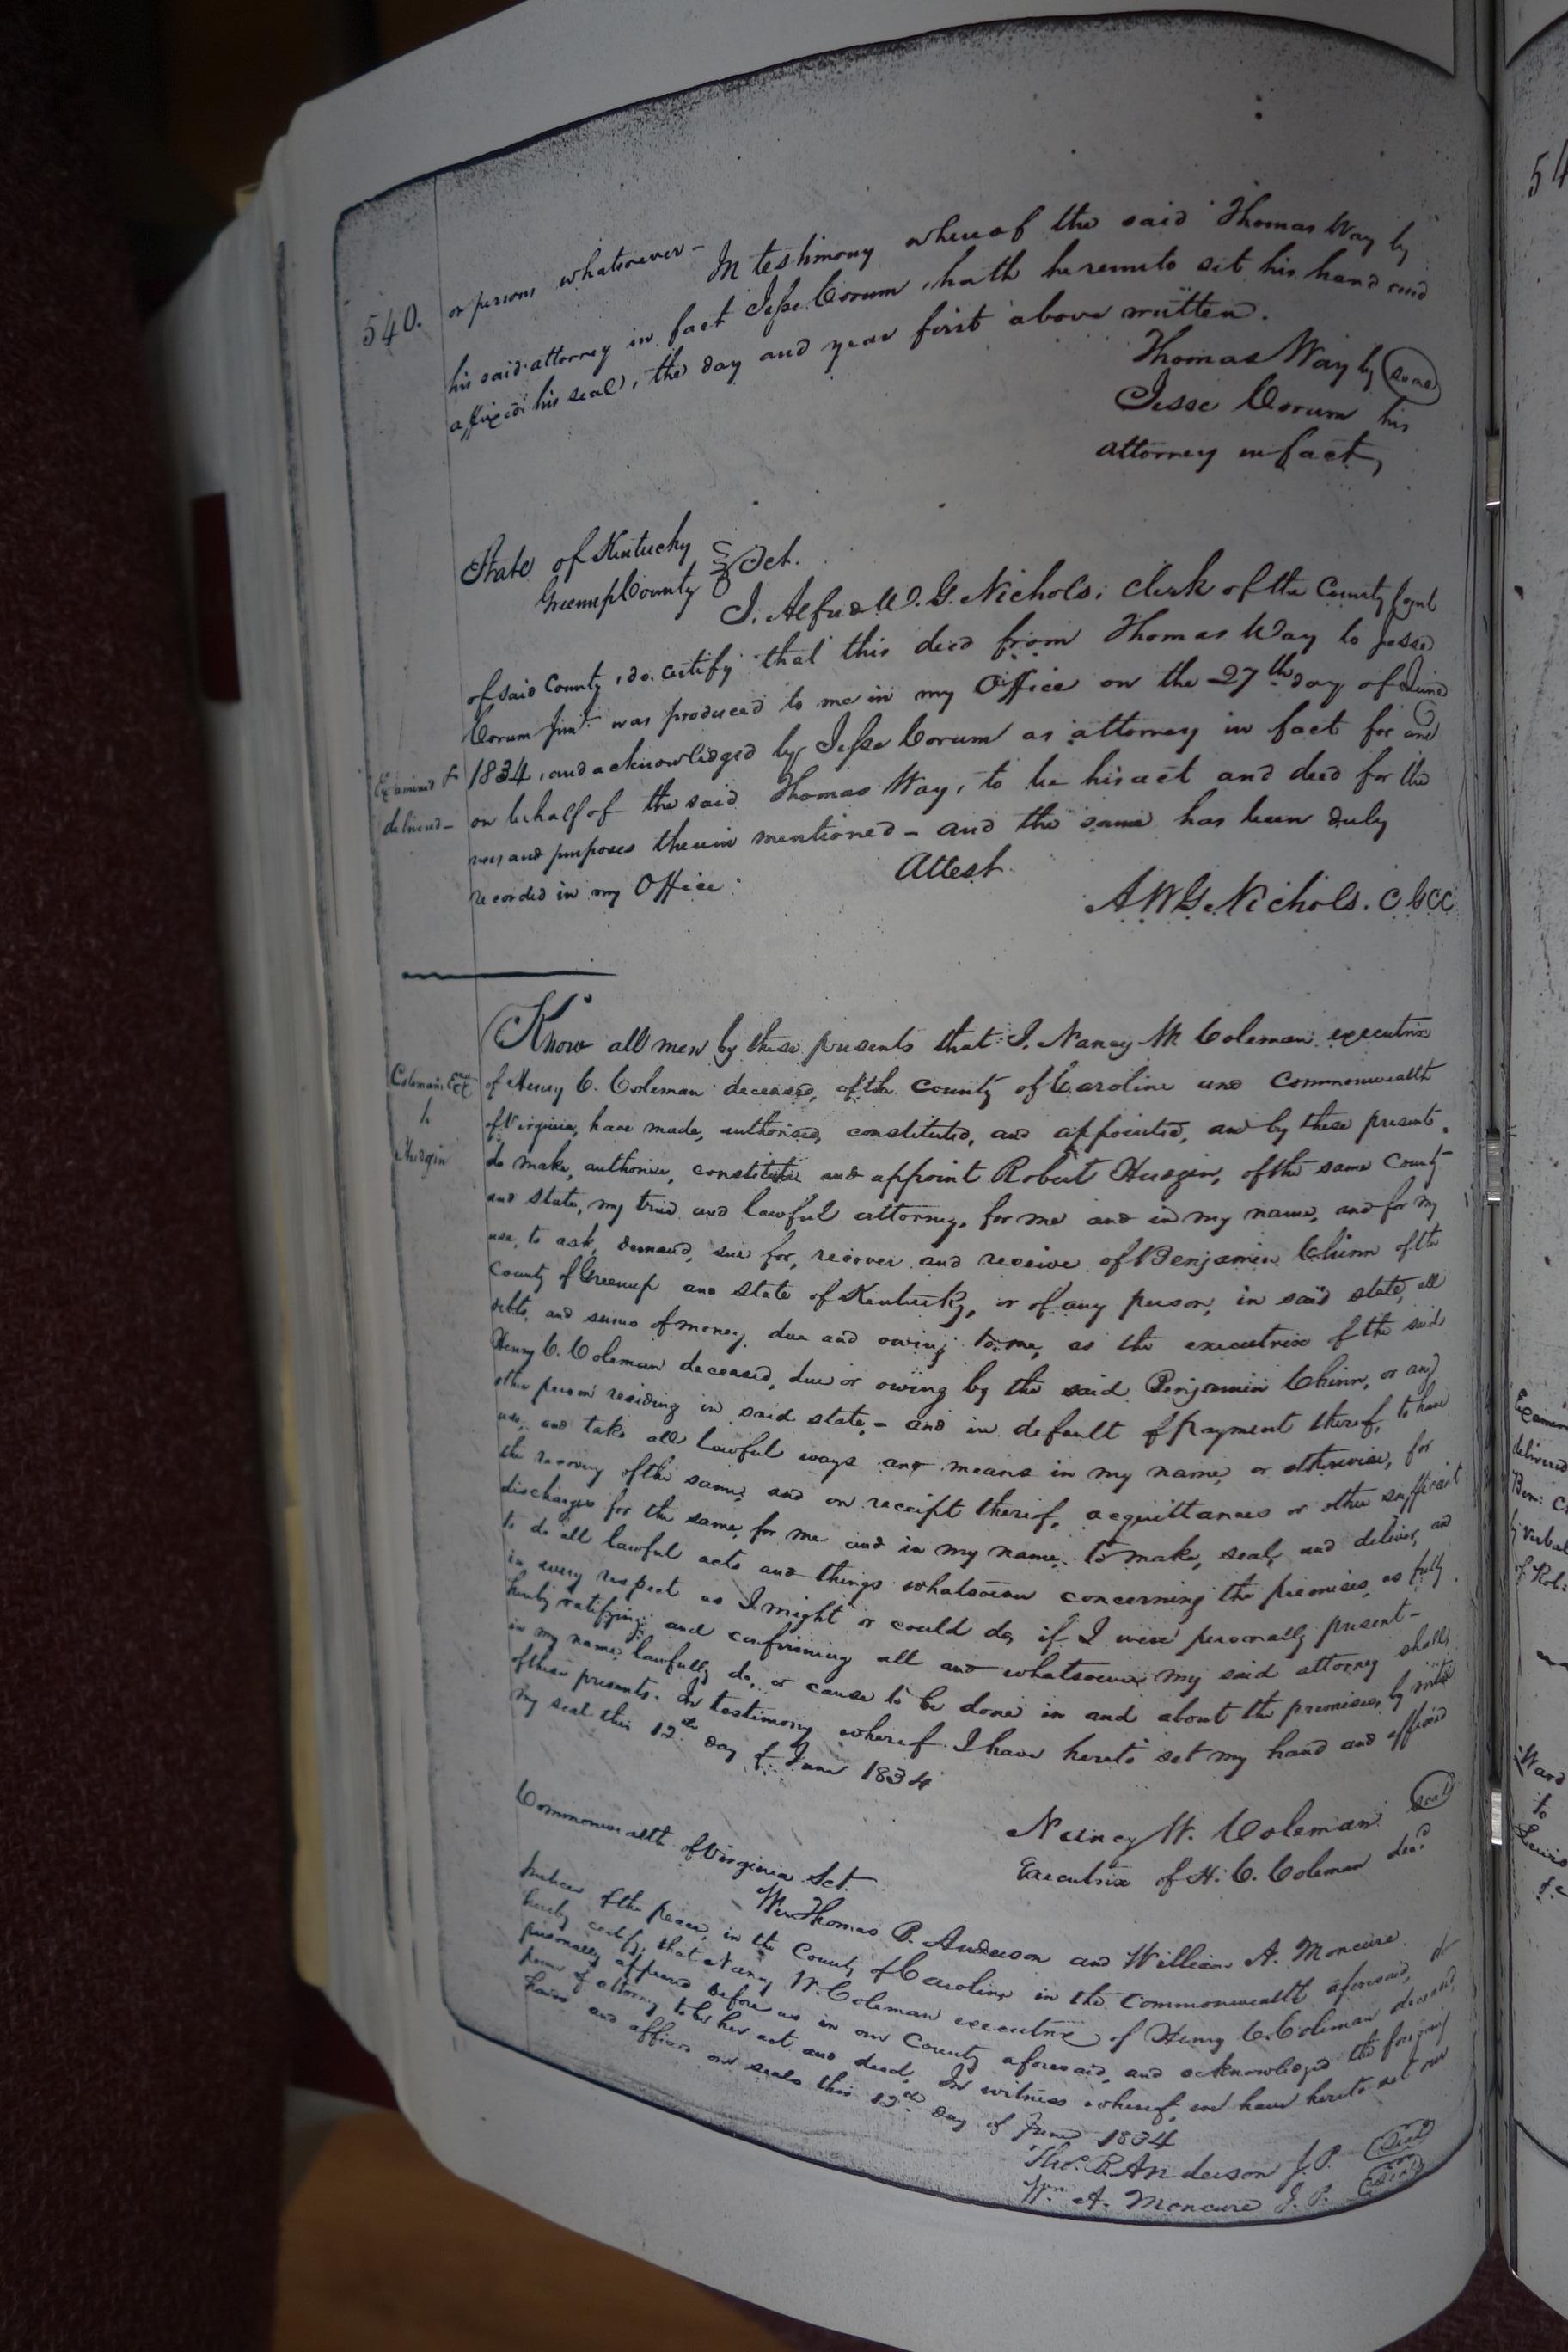 540.
or persons whatsoever - In testimony whereof the said Thomas Way by
his said attorney in fact Jesse Corum, hath hereunto set his hand and
affixed his seal, the day and year first above written.
Thomas Way by (seal)
Jesse Corum his
attorney in fact,
State of Kentucky
Greenup County Sct.
I, Alfred W. G. Nichols, clerk of the County Court
of said County, do certify that this deed from Thomas Way to Jesse
Corum Junr. was produced to me in my Office on the 27th day of June
1834, and acknowledged by Jesse Corum as attorney in fact for and
on behalf of the said Thomas Way, to be his act and deed for the
uses and purposes therein mentioned - and the same has been duly
recorded in my Office:
Attest.
A W G Nichols. C G C C
Examined &
delivered -
Know all men by these presents that I, Nancy W Coleman executrix
of Henry C. Coleman deceased, of the county of Caroline and Commonwealth
of Virginia, have made, authorised, constituted, and appointed, and by these presents,
do make, authorise, constitute and appoint Robert Hudgin, of the same County
and state, my true and lawful attorney, for me and in my name, and for my
use, to ask, demand, sue for, recover and receive of Benjamin Chinn of the
County of Greenup and state of Kentucky, or of any person, in said state, all
debts, and sums of money due and owing to me, as the executrix of the said
Henry C. Coleman deceased, due or owing by the said Benjamin Chinn, or any
other person residing in said state, - and in default of payment thereof, to have
use, and take all lawful ways and means in my name, or otherwise, for
the recovery of the same, and on receipt thereof, acquittances or other sufficient
discharges for the same, for me and in my name, to make, seal, and deliver, and
to do all lawful acts and things whatsoever concerning the premises, as fully
in every respect as I might or could do, if I were personally present -
hereby ratifying and confirming all and whatsoever my said attorney shall,
in my name, lawfully do, or cause to be done in and about the premises, by virtue
of these presents. In testimony whereof I have hereto set my hand and affixed
my seal this 12th day of June 1834
Coleman's
to
Hudgin
Nancy W. Coleman (seal)
Executrix of H. C. Coleman decd
Commonwealth of Virginia Sct.
We Thomas B. Anderson and William A. Moncure
Justices of the peace, in the County of Caroline in the Commonwealth aforesaid, do
hereby certify that Nancy W. Coleman executrix of Henry C. Coleman deceased
personally appeared before us in our County aforesaid, and acknowledged the foregoing
power of attorney to be her act and deed. In witness whereof, we have hereto set our
hands and affixed our seals this 12th day of June 1834
Tho. B. Anderson J. P. (Seal)
Wm A. Moncure J. P. (Seal)
54
delivered
Ward
to
Lewis